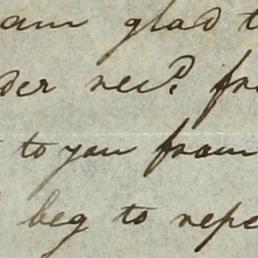 am glad t
der recd. fr
to you from
beg to repe